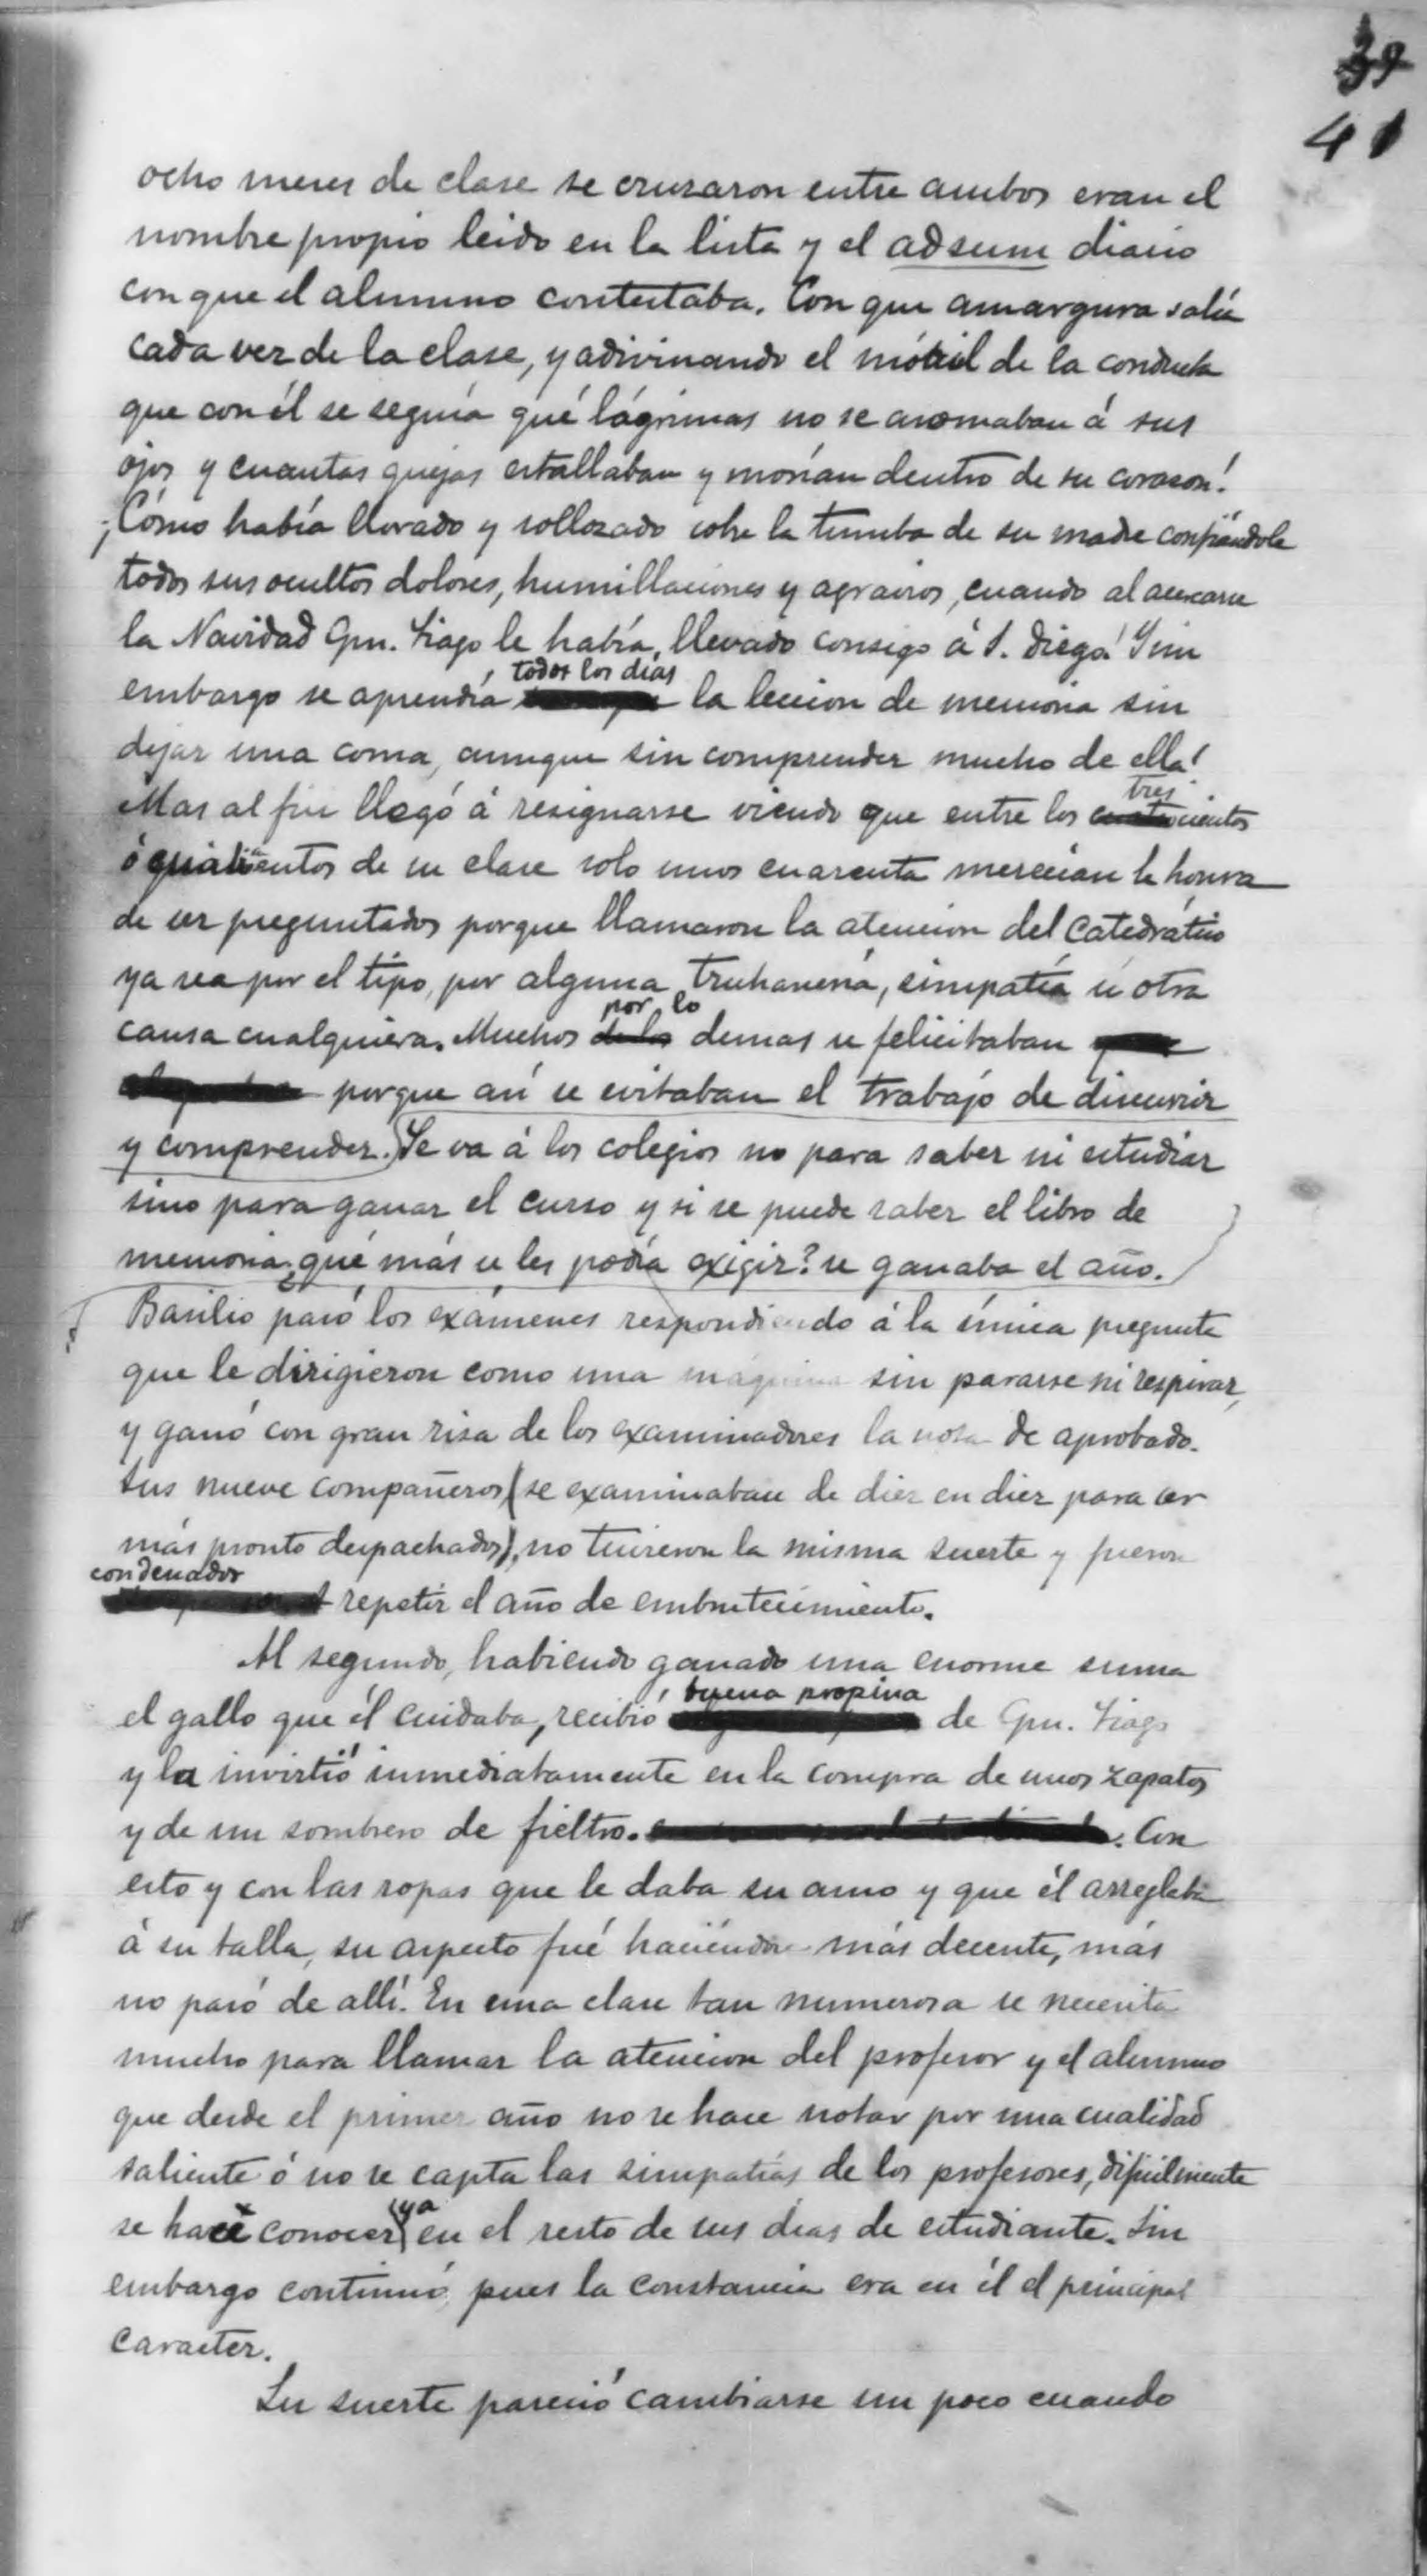 39
41
ocho meses de clase se cruzaron entre ambos eran el
nombre propio leido en la lista y el adsum diario
con que el alumno contestaba. Con que amargura salía
cada vez de la clase, y adivinando el móvil de la conducta
que con él se seguía qué lágrimas no se asomaban á sus
ojos y cuantas quejas estallaban y morían dentro de su corazon!
¡Cómo había llorado y sollozado sobre la tumba de su madre confiándole
todos sus ocultos dolores, humillaciones y agravios, cuando al acercarse
la Navidad Cpn. Tiago le había llevado consigo á S. Diego! Y sin
todos los días
embargo se aprendía la leccion de memoria sin
dejar una coma, aunque sin comprender mucho de ella!
tres
Mas al fin llegó á resignarse viendo que entre los cuatrocientos
ó cuatrocientos de su clase solo unos cuarenta merecían la honra
de ser preguntados porque llamaron la atencion del catedrático
ya sea por el tipo, por alguna truhanería, simpatía ú otra
por lo
causa cualquiera. Muchos de los demas se felicitaban
porque así se evitaban el trabajo de discurrir
y comprender. Se va á los colegios no para saber ni estudiar
sino para ganar el curso y si se puede saber el libro de
memoria ¿qué más se les podía exigir? se ganaba el año.
Basilio pasó los exámenes respondiendo á la única pregunta
que le dirigieron como una máquina sin pararse ni respirar,
y ganó con gran risa de los examinadores la nota de aprobado.
Sus nueve compañeros (se examinaban de diez en diez para ser
más pronto despachados), no tuvieron la misma suerte y fueron
condenados
á repetir el año de embrutecimiento.
Al segundo, habiendo ganado una enorme suma
buena propina
el gallo que él cuidaba, recibió de Cpn. Tiago
y la invirtió inmediatamente en la compra de unos zapatos
y de un sombrero de fieltro. Con
esto y con las ropas que le daba su amo y que él arreglaba
á su talla, su aspecto fué haciéndose más decente, mas
no pasó de allí. En una clase tan numerosa se necesita
mucho para llamar la atencion del profesor y el alumno
que desde el primer año no se hace notar por una cualidad
saliente ó no se capta las simpatías de los profesores, dificilmente
ya
se hace conocer en el resto de sus días de estudiante. Sin
embargo continuó, pues la constancia era en él el principal
caracter.
Su suerte pareció cambiarse un poco cuando